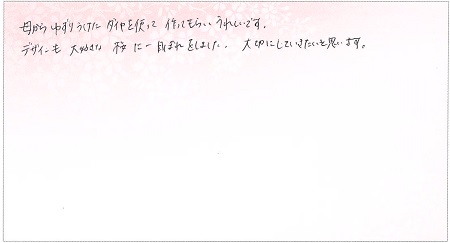 母からゆずりうけたダイヤを使って 作ってもらい うれしいです。
デザインも 大好きな 桜に一目ぼれをしました。 大切にしていきたいと思います。